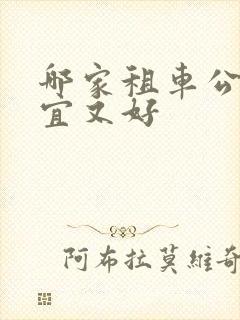 哪家租車公
宜又好
阿布拉莫維奇